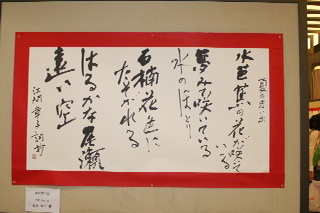 夏の思い出
水芭蕉の花が咲いて
いる
夢みて咲いている
水のほとり
石楠花色に
たそがれる
はるかな尾瀬
遠い空
江間章子詞抄